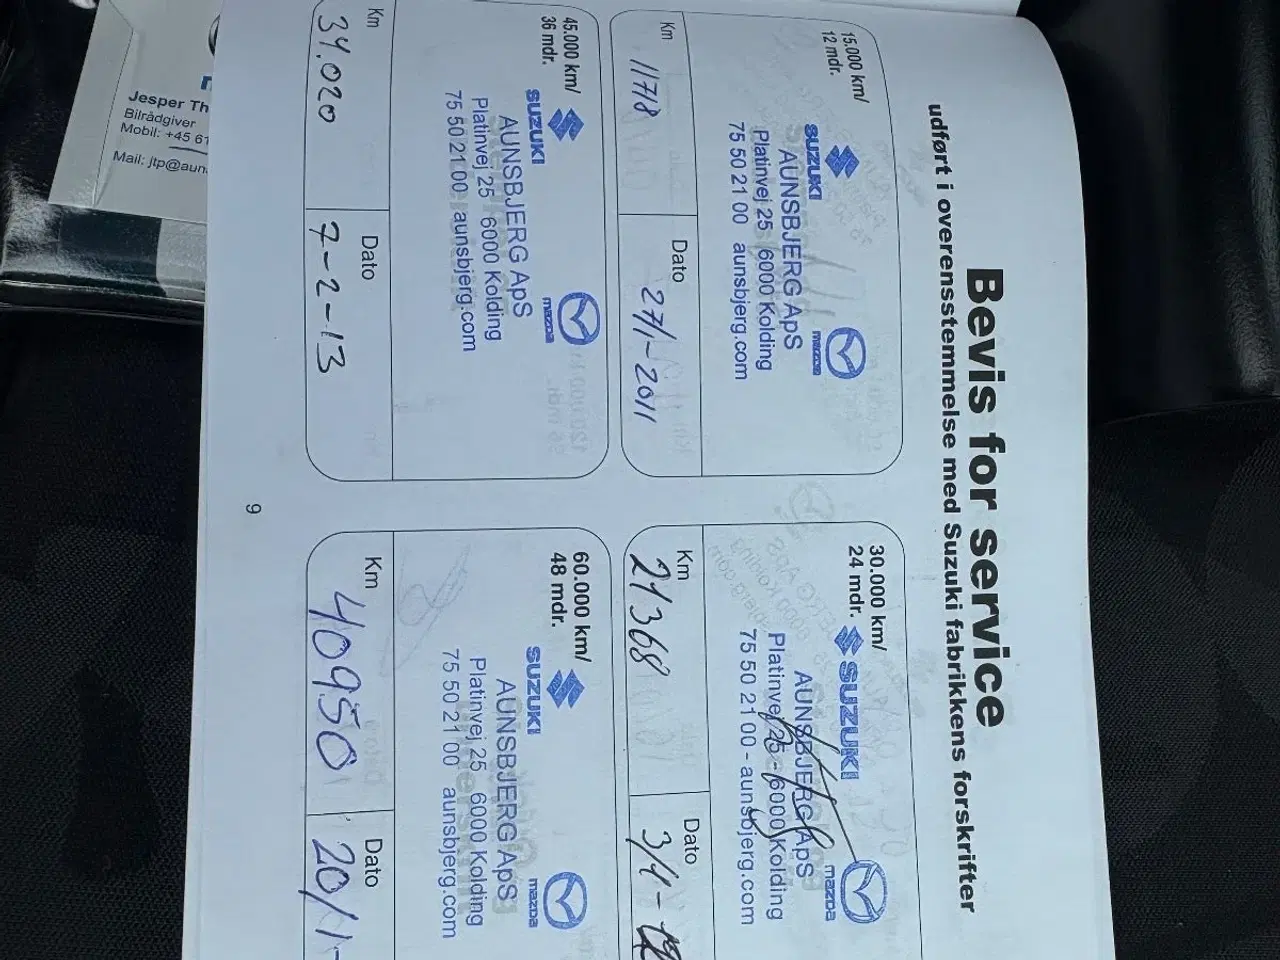 Bevis for service
udført i overensstemmelse med Suzuki fabrikkens forskrifter
15.000 km/
12 mdr.
SUZUKI
mazda
AUNSBJERG ApS
Platinvej 25 6000 Kolding
75 50 21 00 aunsbjerg.com
Km
11718
Dato
27/1-2011
30.000 km/
24 mdr.
SUZUKI
mazda
AUNSBJERG ApS
Platinvej 25 - 6000 Kolding
75 50 21 00 - aunsbjerg.com
Km
21368
Dato
3/4-
45.000 km/
36 mdr.
SUZUKI
mazda
AUNSBJERG ApS
Platinvej 25 6000 Kolding
75 50 21 00 aunsbjerg.com
Km
34.020
Dato
7-2-13
60.000 km/
48 mdr.
SUZUKI
mazda
AUNSBJERG ApS
Platinvej 25 6000 Kolding
75 50 21 00 aunsbjerg.com
Km
40950
Dato
20/1-
9
Jesper Th
Bilrådgiver
Mobil: +45 61
Mail: jtp@aun